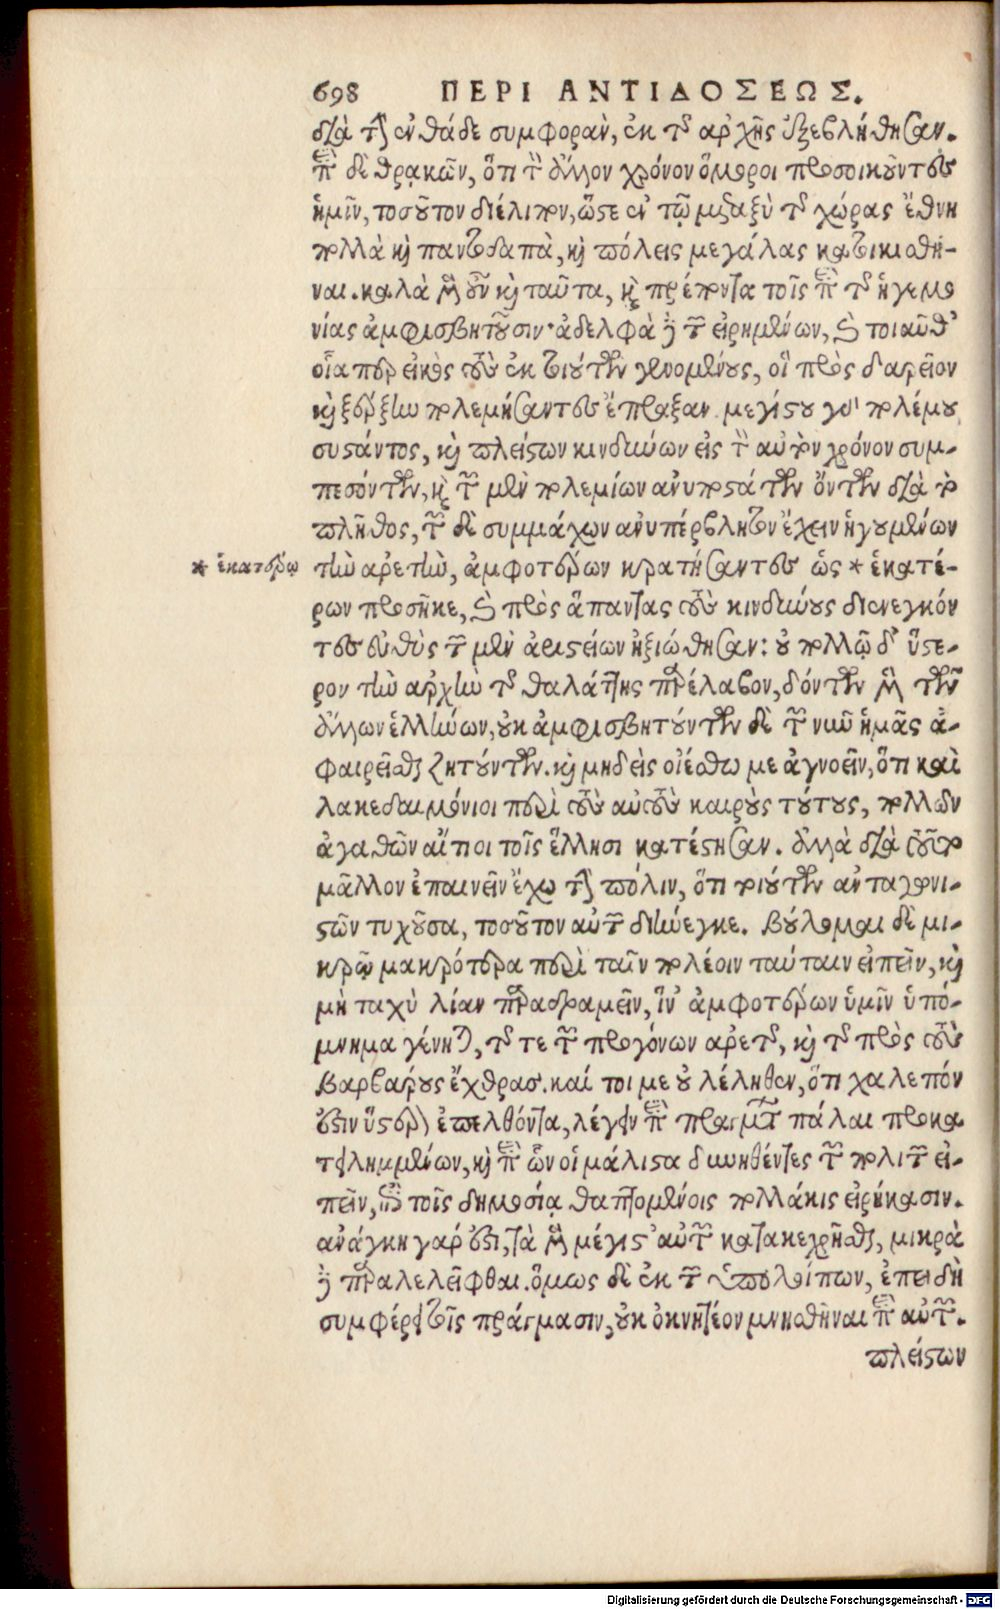 698 ΠΕΡΙ ΑΝΤΙΔΟΣΕΩΣ.
διὰ τὴν ἐνθάδε συμφορὰν, ἐκ τῆς ἀρχῆς ἐξεβλήθησαν.
περὶ δὲ θρᾳκῶν, ὅτι τὸν ἄλλον χρόνον ὅμοροι προσοικοῦντες
ἡμῖν, τοσοῦτον διέλιπον, ὥστε ἐν τῷ μεταξὺ τῆς χώρας ἔθνη
πολλὰ καὶ παντοδαπὰ, καὶ πόλεις μεγάλας κατοικισθῆ-
ναι. καλὰ μὲν οὖν καὶ ταῦτα, καὶ πρέποντα τοῖς περὶ τῆς ἡγεμο
νίας ἀμφισβητοῦσιν· ἀδελφὰ δὲ τῶν εἰρημένων, καὶ τοιαῦθ'
οἷα περ εἰκὸς τοὺς ἐκ τοιούτων γενομένους, οἱ πρὸς δαρεῖον
καὶ ξέρξην πολεμήσαντες ἔπραξαν. μεγίστου γὰρ πολέμου
συστάντος, καὶ πλείστων κινδύνων εἰς τὸν αὐτὸν χρόνον συμ-
πεσόντων, καὶ τῶν μὲν πολεμίων ἀνυποστάτων ὄντων διὰ τὸ
πλῆθος, τῶν δὲ συμμάχων ἀνυπέρβλητον ἔχειν ἡγουμένων
* ἑκατέρῳ τὴν ἀρετὴν, ἀμφοτέρων κρατήσαντες ὡς * ἑκατέ-
ρων προσῆκε, καὶ πρὸς ἅπαντας τοὺς κινδύνους διενεγκόν
τες εὐθὺς τῶν μὲν ἀριστείων ἠξιώθησαν: οὐ πολλῷ δ' ὕστε-
ρον τὴν ἀρχὴν τῆς θαλάττης παρέλαβον, δόντων μὲν τῶν
ἄλλων ἑλλήνων, οὐκ ἀμφισβητούντων δὲ τῶν νῦν ἡμᾶς ἀ-
φαιρεῖσθαι ζητούντων. καὶ μηδεὶς οἰέσθω με ἀγνοεῖν, ὅτι καὶ
λακεδαιμόνιοι περὶ τοὺς αὐτοὺς καιροὺς τούτους, πολλῶν
ἀγαθῶν αἴτιοι τοῖς ἕλλησι κατέστησαν. ἀλλὰ διὰ τοῦτο
μᾶλλον ἐπαινεῖν ἔχω τὴν πόλιν, ὅτι τοιούτων ἀνταγωνι-
στῶν τυχοῦσα, τοσοῦτον αὐτῶν διήνεγκε. βούλομαι δὲ μι-
κρῷ μακρότερα περὶ ταῖν πολέοιν ταύταιν εἰπεῖν, καὶ
μὴ ταχὺ λίαν παραδραμεῖν, ἵν' ἀμφοτέρων ὑμῖν ὑπό-
μνημα γένηται, τῆς τε τῶν προγόνων ἀρετῆς, καὶ τῆς πρὸς τοὺς
βαρβάρους ἔχθρας. καί τοι με οὐ λέληθεν, ὅτι χαλεπόν
ἐστιν ὕστερον ἐπελθόντα, λέγειν περὶ πραγμάτων πάλαι προκα
τειλημμένων, καὶ περὶ ὧν οἱ μάλιστα δυνηθέντες τῶν πολιτῶν εἰ-
πεῖν, ἐπὶ τοῖς δημοσίᾳ θαπτομένοις πολλάκις εἰρήκασιν.
ἀνάγκη γὰρ ἐστι, τὰ μὲν μέγιστ' αὐτῶν κατακεχρῆσθαι, μικρὰ
δὲ παραλελεῖφθαι. ὅμως δὲ ἐκ τῶν ὑπολοίπων, ἐπειδὴ
συμφέρει τοῖς πράγμασιν, οὐκ ὀκνητέον μνησθῆναι περὶ αὐτῶν.
πλείστων
Digitalisierung gefördert durch die Deutsche Forschungsgemeinschaft - DFG